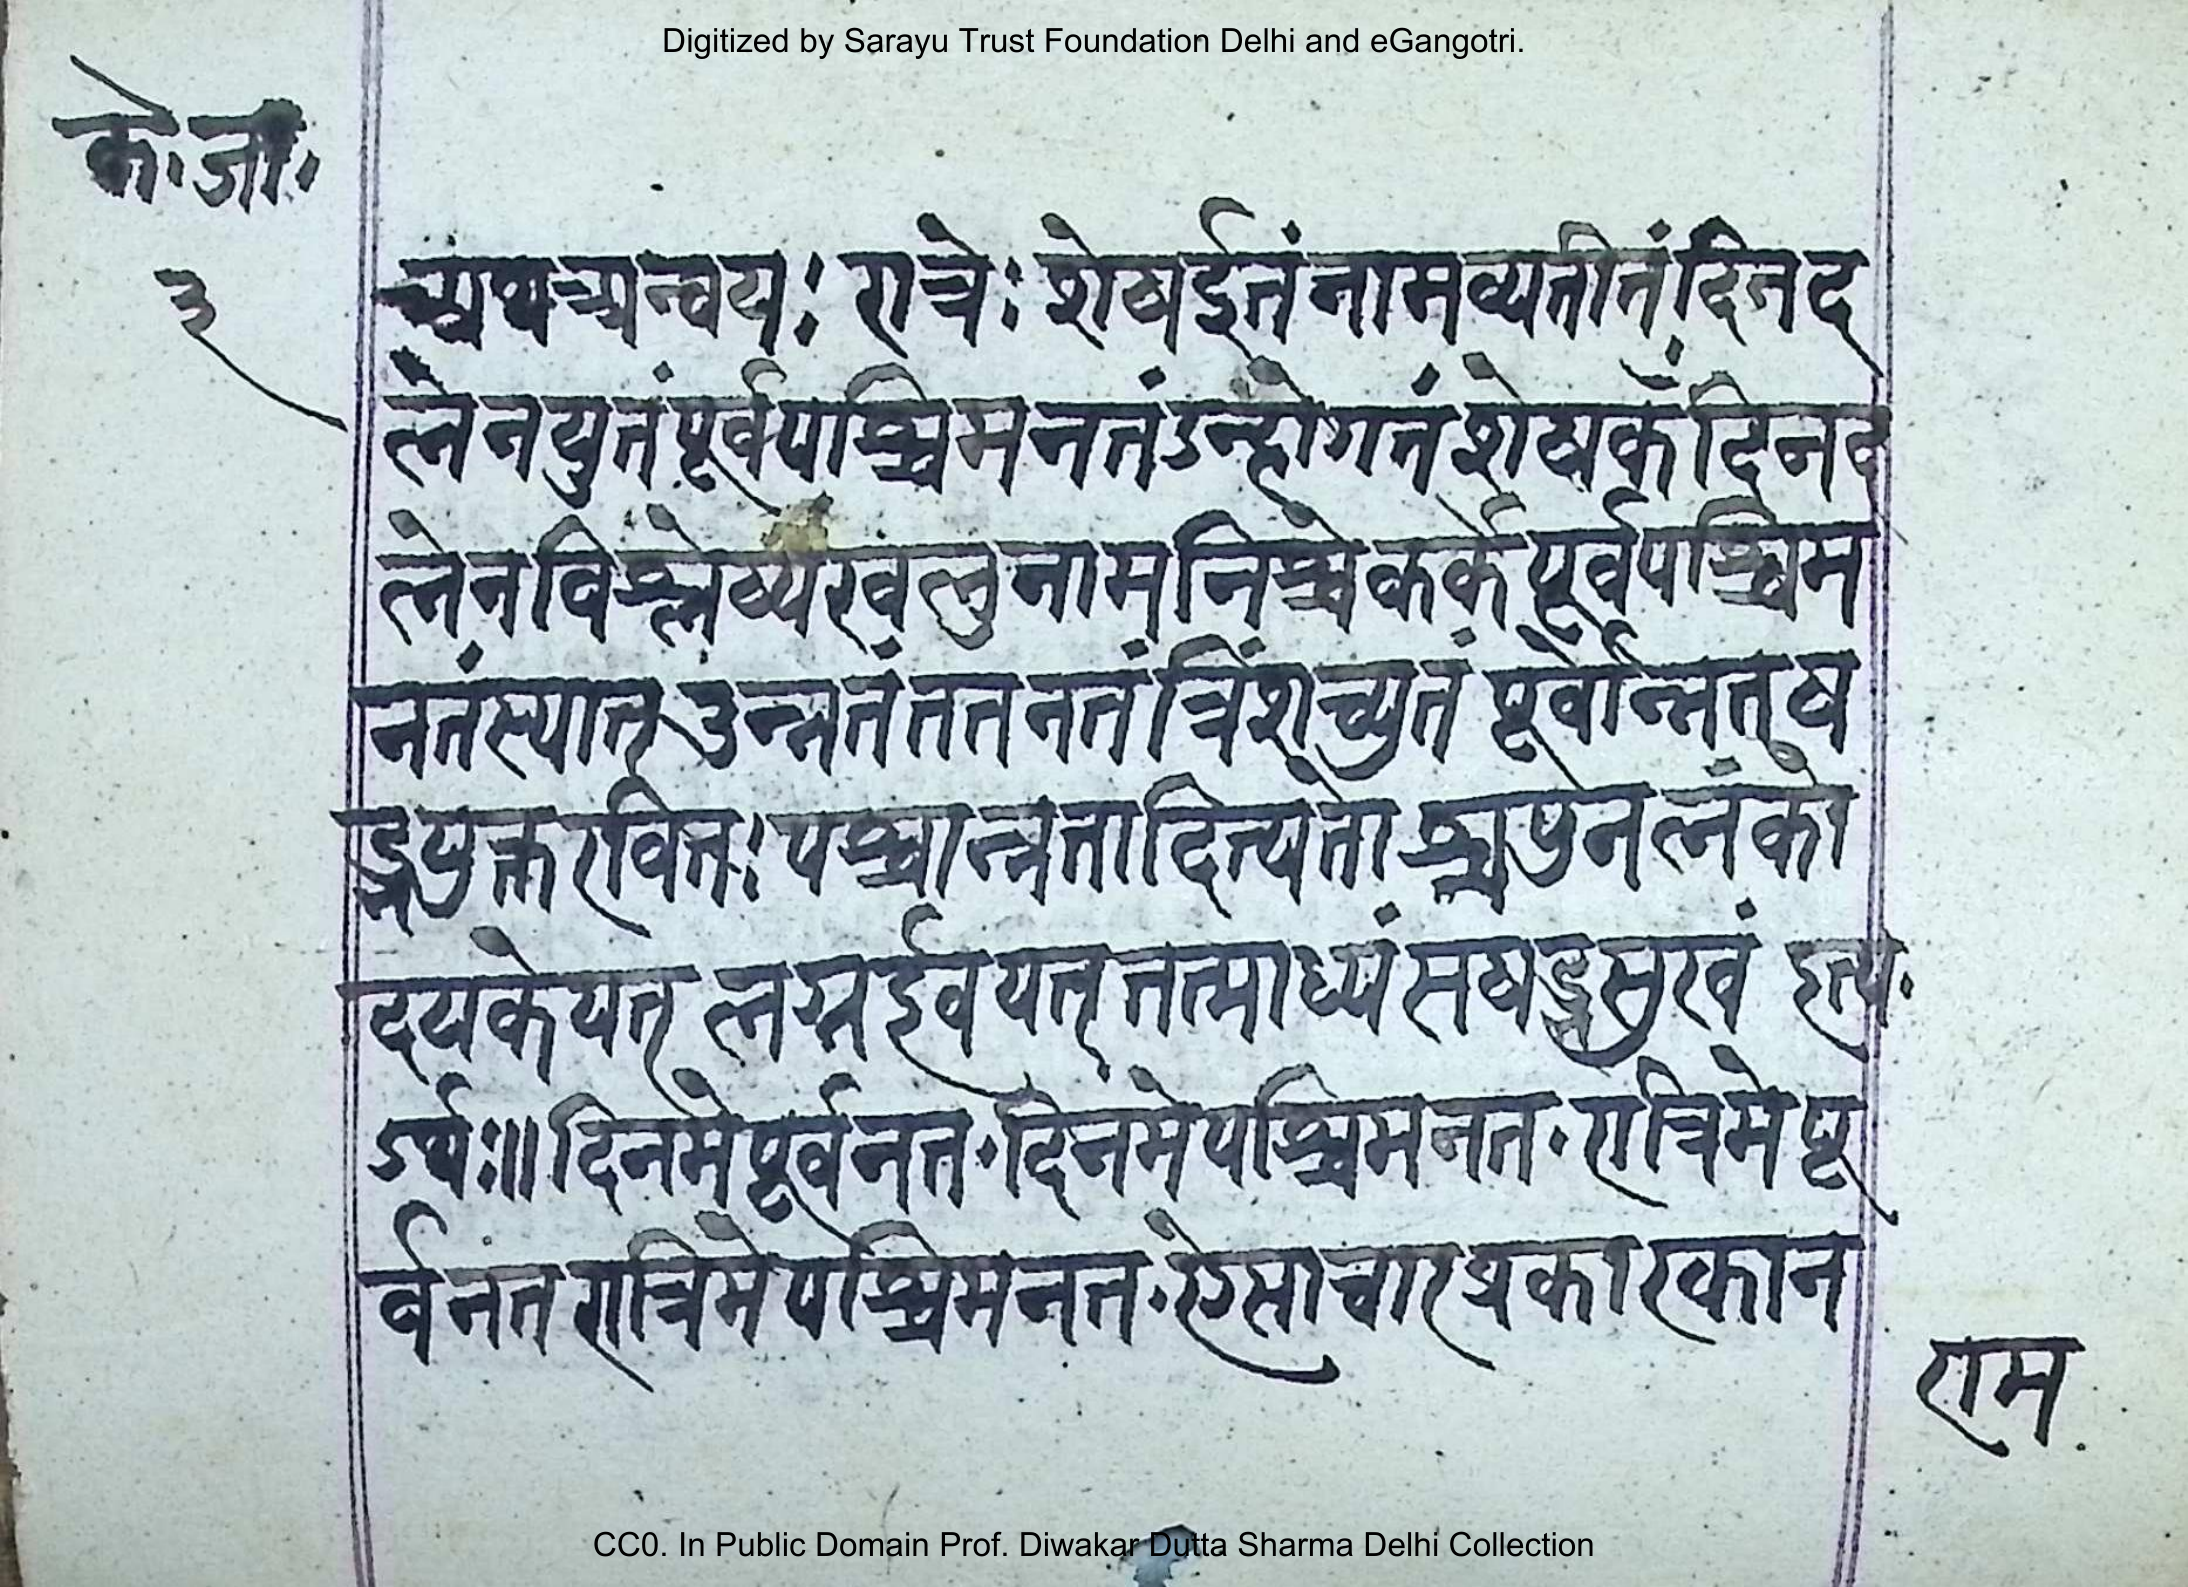 Digitized by Sarayu Trust Foundation Delhi and eGangotri.
के॰जा॰
३
अथअन्वयः रात्रेः शेषईतंनामव्यतीतंदिनद
लेनयुतंपूर्वपश्चिमनतंऽन्होगतंशेषकंदिनद
लेनविश्लेष्यखलुनामनिश्चेकर्केपूर्वपश्चिम
नतंस्यात् उन्नतंततनतंत्रिंशच्युतं पूर्वोन्नतष
ड्भयुक्तरवितः पश्चान्नतादित्यतो
दयकेयत् लग्नईवयत् तत्माध्यंसषड्भसुखं इत्य॰
ऽर्थः॥ दिनमेपूर्वनत॰दिनमेपश्चिमनत॰रात्रिमेपू
र्वनत रात्रिमेपश्चिमनत॰ऐसाचारप्रकारकान
राम
CC0. In Public Domain Prof. Diwakar Dutta Sharma Delhi Collection